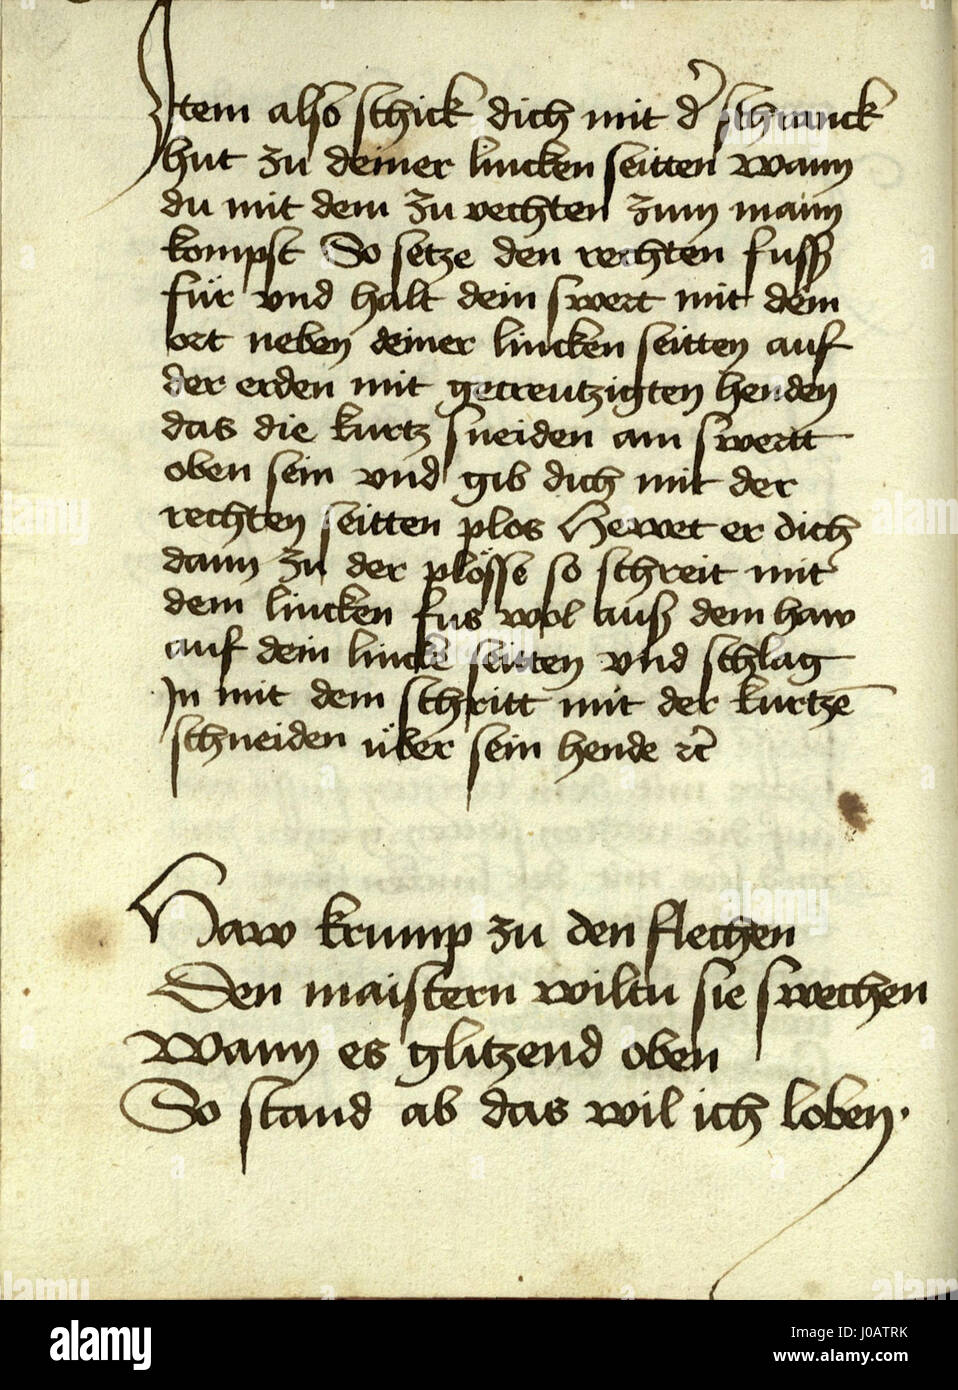 Item also schick dich mit d̾ schranck
hut zu deiner lincken seitten wann
du mit dem zu vechten zum mann
kompst So setze den rechten fusß
für vnd halt dein swert mit dem
ort neben deiner lincken seitten auf
der erden mit gecreutzigten henden
das die kurtz sneiden am swertt
oben sein vnd gib dich mit der
rechten seitten plos Hewet er dich
dann zu der plösse so schreit mit
dem lincken fus wol auß dem haw
auf dein lincke seitten vnd schlag
In mit dem schritt mit der kurtzē
schneiden über sein hende ꝛc̃
Haw krump zu den flechen
Den maistern wiltu sie swechen
Wann es glitzend oben
So stand ab das wil ich loben·
alamy
Image ID: J0ATRK
www.alamy.com